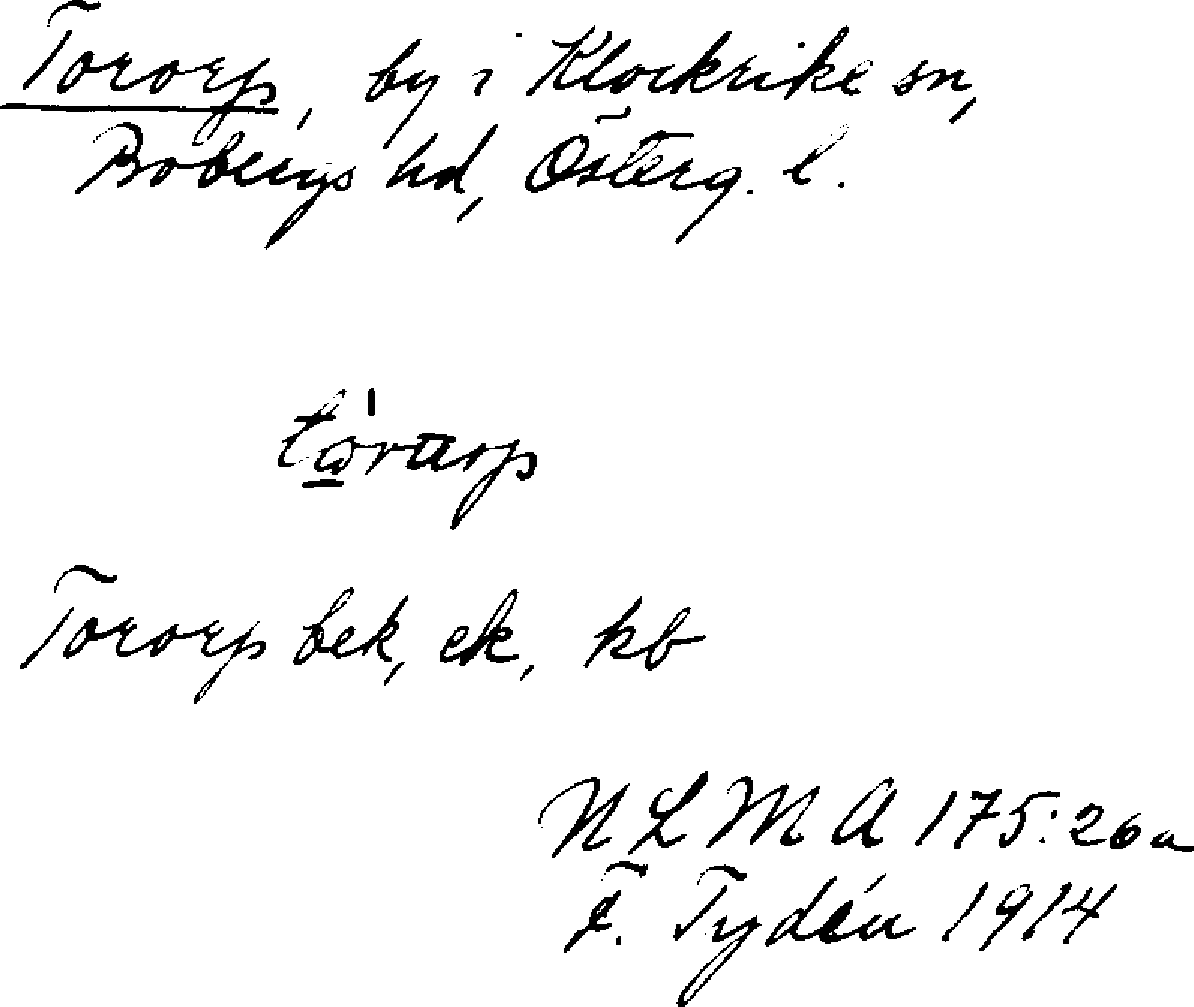 Tororp, by i Klockrike sn,
Bobergs hd, Österg. l.
Tororp bek, ek, kb
NLMA 175:26a
F. Tydén 1914